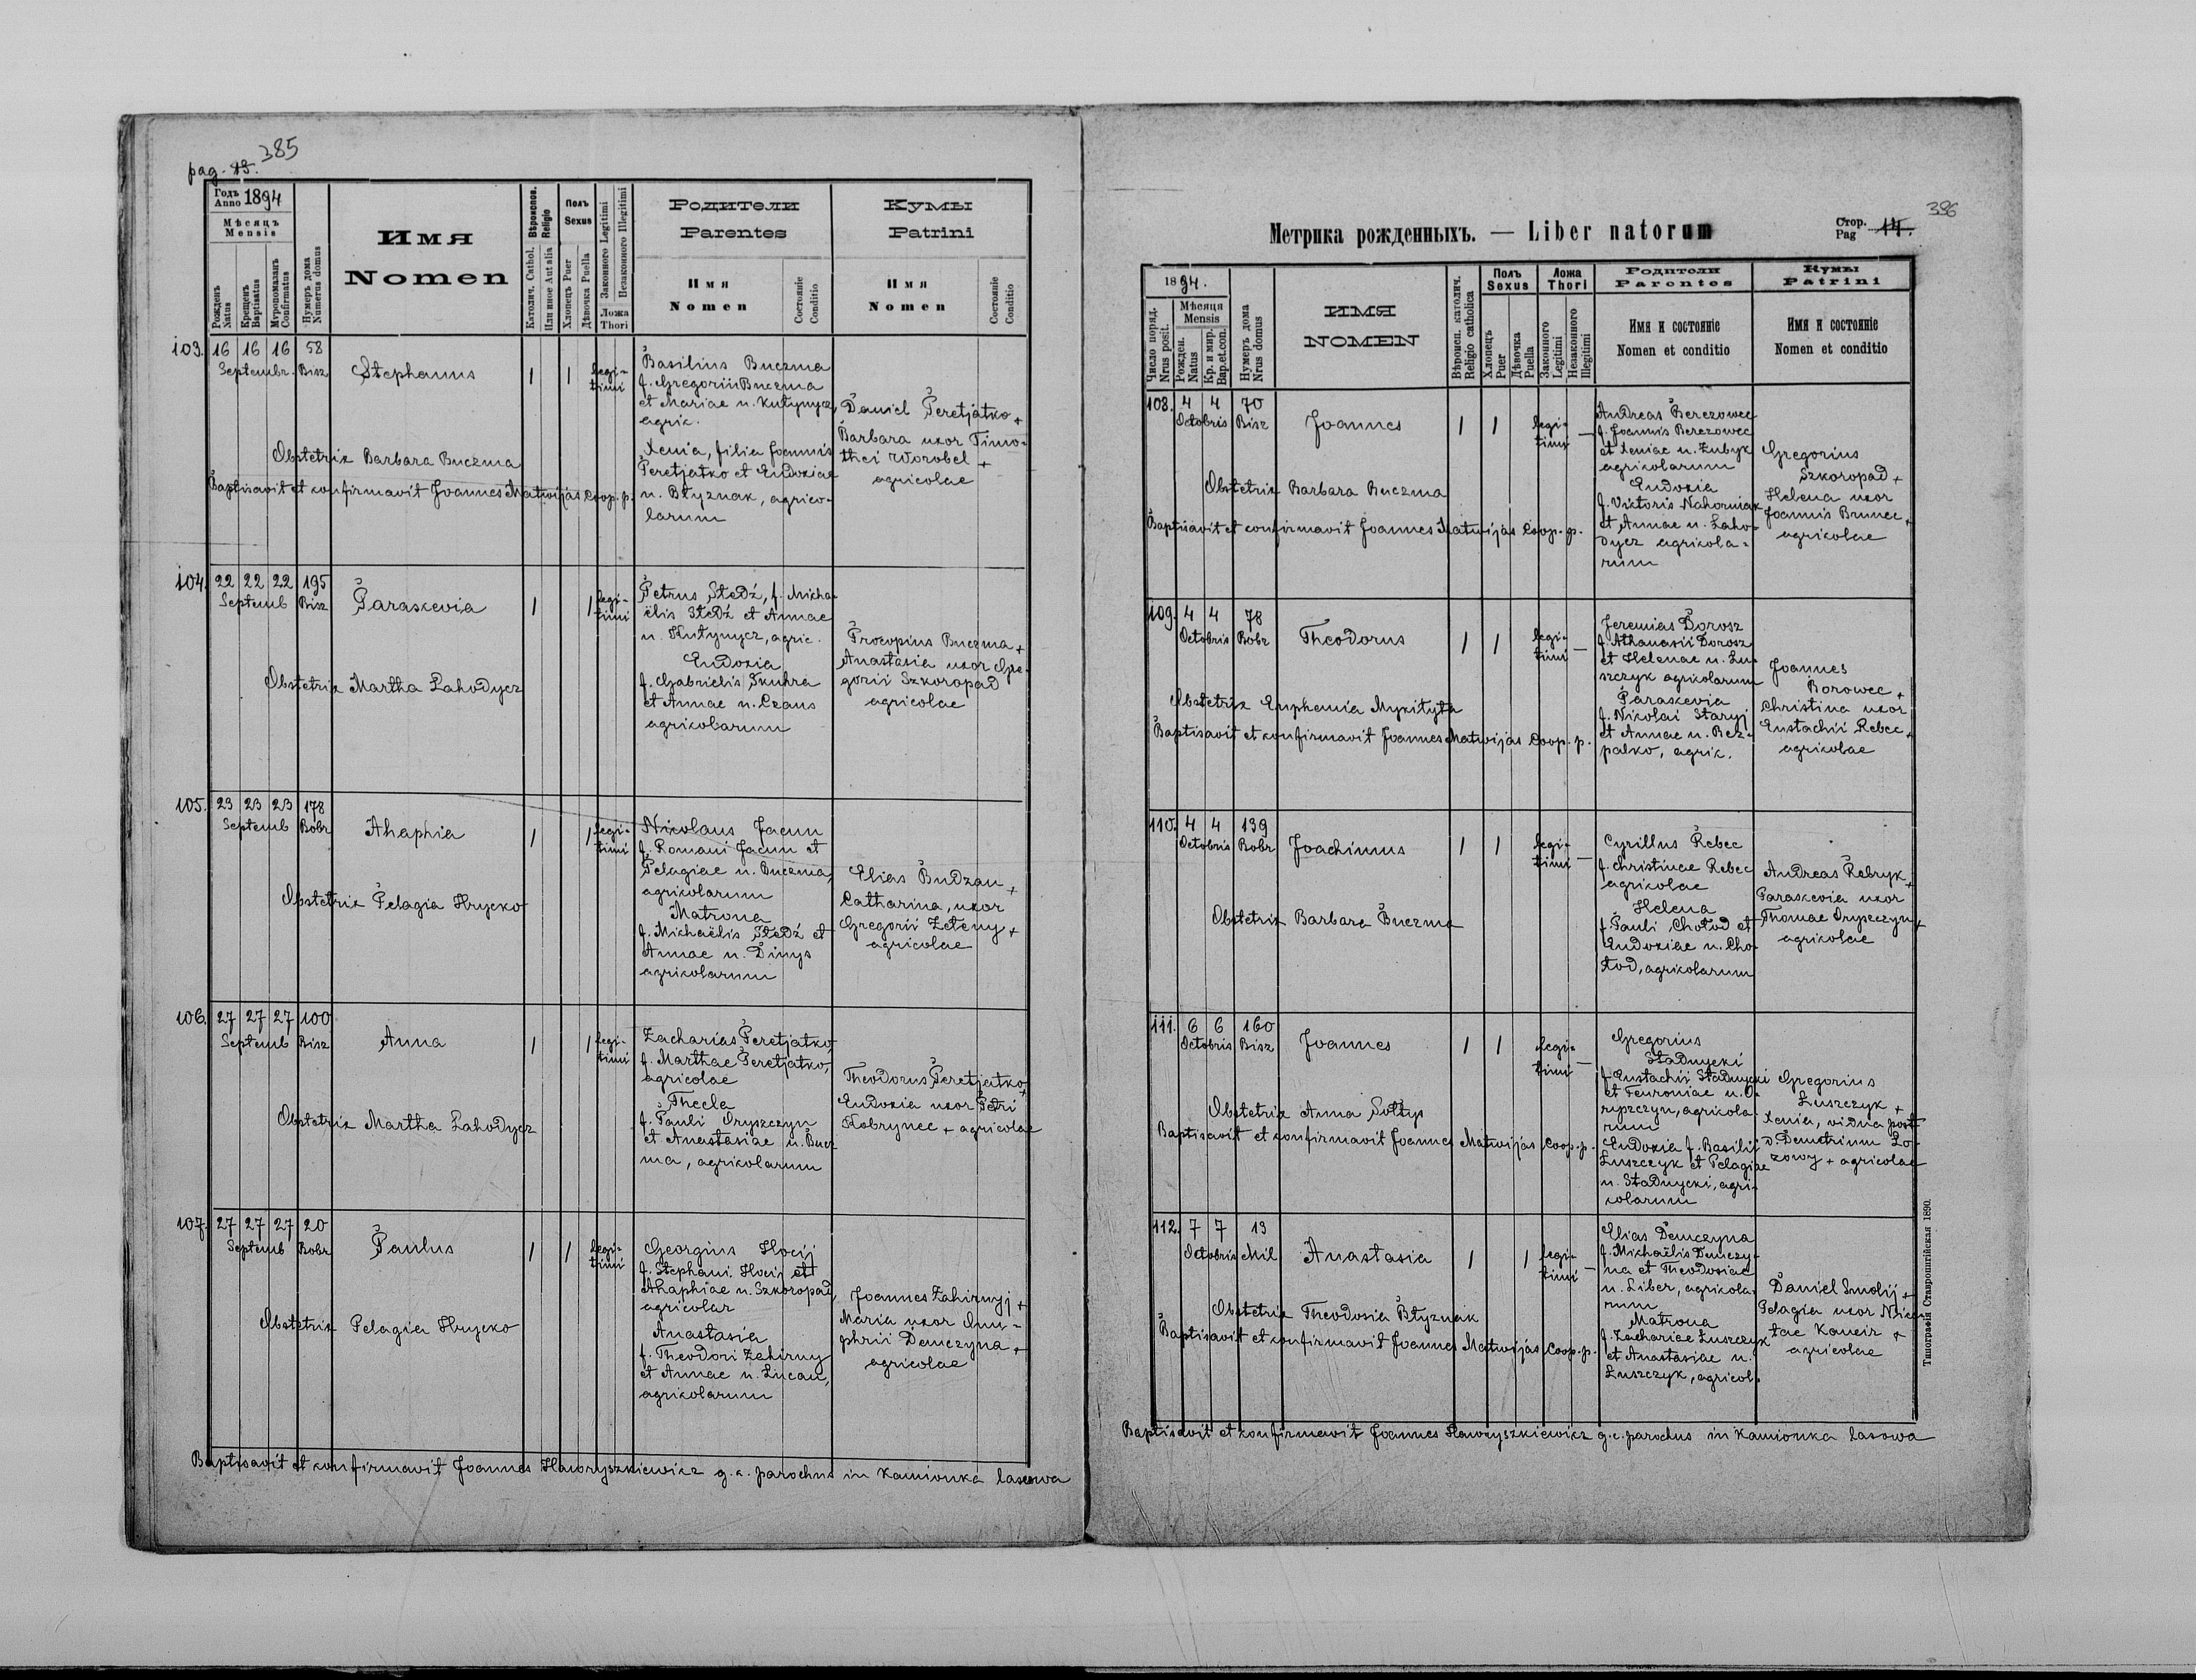 pag. 13. 385
Годъ Anno 1894
Мѣсяцъ Mensis
Рожденъ Natus
Крещенъ Baptisatus
Мѵропомазанъ Confirmatus
Нумеръ дома Numerus domus
Имя
Nomen
Вѣроиспов. Religio
Католич. Cathol.
Или иное Aut alia
Полъ Sexus
Хлопецъ Puer
Дѣвочка Puella
Законного Legitimi
Незаконного Illegitimi
Ложа Thori
Родители
Parentes
Имя
Nomen
Состояніе
Conditio
Кумы
Patrini
Имя
Nomen
Состояніе
Conditio
103. 16 16 16 58
Septembr. Bisz
Stephanus 1 1 legi-
timi
Basilius Buczma
f. Gregorii Buczma
et Mariae n. Kutynycz,
agric.
Xenia, filia Joannis
Peretjatko et Eudoxiae
n. Błyznak, agrico-
larum
Daniel Peretjatko +
Barbara uxor Timo-
thei Worobel +
agricolae
Obstetrix Barbara Buczma
Baptisavit et confirmavit Joannes Matwijas coop. p.
104. 22 22 22 195
Septemb Bisz
Paraskevia 1 1 legi-
timi
Petrus Stedź, f. Micha-
ëlis Stedź et Annae
n. Kutynycz, agric.
Eudoxia
f. Gabrielis Skuhra
et Annae n. Czaus
agricolarum
Procopius Buczma +
Anastasia uxor Gre-
gorii Szkoropad
agricolae
Obstetrix Martha Lahodycz
105. 23 23 23 178
Septemb Bobr
Ahaphia 1 1 legi-
timi
Nicolaus Jacun
f. Romani Jacun et
Pelagiae n. Buczma,
agricolarum
Matrona
f. Michaëlis Stedź et
Annae n. Dinys
agricolarum
Elias Budzan +
Catharina, uxor
Gregorii Zeteny +
agricolae
Obstetrix Pelagia Hrycko
106. 27 27 27 100
Septemb Bisz
Anna 1 1 legi-
timi
Zacharias Peretjatko,
f. Marthae Peretjatko,
agricolae
Thecla
f. Pauli Oryszczyn
et Anastasiae n. Bucz-
ma, agricolarum
Theodorus Peretjatko +
Eudoxia uxor Petri
Kobrynec + agricolae
Obstetrix Martha Lahodycz
107. 27 27 27 20
Septemb Bobr
Paulus 1 1 legi-
timi
Georgius Hocij
f. Stephani Hocij et
Ahaphiae n. Szkoropad,
agricolar
Anastasia
f. Theodori Zahirny
et Annae n. Lucan,
agricolarum
Joannes Zahirnyj +
Maria uxor Onu-
phrii Demczyna +
agricolae
Obstetrix Pelagia Hrycko
Baptisavit et confirmavit Joannes Hawryszkiewicz g. c. parochus in Kamionka lasowa
396
Метрика рожденныхъ. — Liber natorum
Стор. Pag 14.
1894.
Число поряд. Nrus posit.
Мѣсяця Mensis
Рожден. Natus
Кр. и мир. Bap. et con.
Нумеръ дома Nrus domus
ИМЯ
NOMEN
Вѣроисп. католич. Religio catholica
Полъ Sexus
Хлопецъ Puer
Дѣвочка Puella
Ложа Thori
Законного Legitimi
Незаконного Illegitimi
Родители
Parentes
Имя и состояніе
Nomen et conditio
Кумы
Patrini
Имя и состояніе
Nomen et conditio
108. 4 4 70
Octobris Bisz
Joannes 1 1 legi-
timi —
Andreas Berezowec
f. Joannis Berezowec
et Xeniae n. Zubyk
agricolarum
Eudoxia
f. Victoris Nahorniak
et Annae n. Laho-
dycz agricola-
rum
Gregorius
Szkoropad +
Helena uxor
Joannis Brunec +
agricolae
Obstetrix Barbara Buczma
Baptisavit et confirmavit Joannes Matwijas coop. p.
109. 4 4 78
Octobris Bobr
Theodorus 1 1 legi-
timi —
Jeremias Dorosz
f. Athanasii Dorosz
et Helenae n. Łu-
szczyk agricolarum
Paraskevia
f. Nicolai Staryj
et Annae n. Bez-
palko, agric.
Joannes
Borowec +
Christina uxor
Eustachii Rebec +
agricolae
Obstetrix Euphemia Mykityta
Baptisavit et confirmavit Joannes Matwijas coop. p.
110. 4 4 139
Octobris Bobr
Joachimus 1 1 legi-
timi —
Cyrillus Rebec
f. Christinae Rebec
agricolae
Helena
f. Pauli Chołod et
Eudoxiae n. Cho-
łod, agricolarum
Andreas Rebryk +
Paraskevia uxor
Thomae Oryszczyn +
agricolae
Obstetrix Barbara Buczma
111. 6 6 160
Octobris Bisz
Joannes 1 1 legi-
timi —
Gregorius
Stadnycki
f. Eustachii Stadnycki
et Feuroniae n. O-
ryszczyn, agricola-
rum
Eudoxia f. Basilii
Łuszczyk et Pelagiae
n. Stadnycki, agri-
colarum
Gregorius
Łuszczyk +
Xenia, vidua post
D Demetrium Lo-
zowy + agricolae
Obstetrix Anna Sołtys
Baptisavit et confirmavit Joannes Matwijas coop. p.
112. 7 7 13
Octobris Mil
Anastasia 1 1 legi-
timi —
Elias Demczyna
f. Michaëlis Demczy-
na et Theodosiae
n. Liber, agricola-
rum
Matrona
f. Zachariae Łuszczyk
et Anastasiae n.
Łuszczyk, agricol.
Daniel Smolij +
Pelagia uxor Nice-
tae Kancir +
agricolae
Obstetrix Theodosia Błyznak
Baptisavit et confirmavit Joannes Matwijas coop. p.
Baptisavit et confirmavit Joannes Hawryszkiewicz g. c. parochus in Kamionka lasowa
Типографія Ставропигійская 1890.